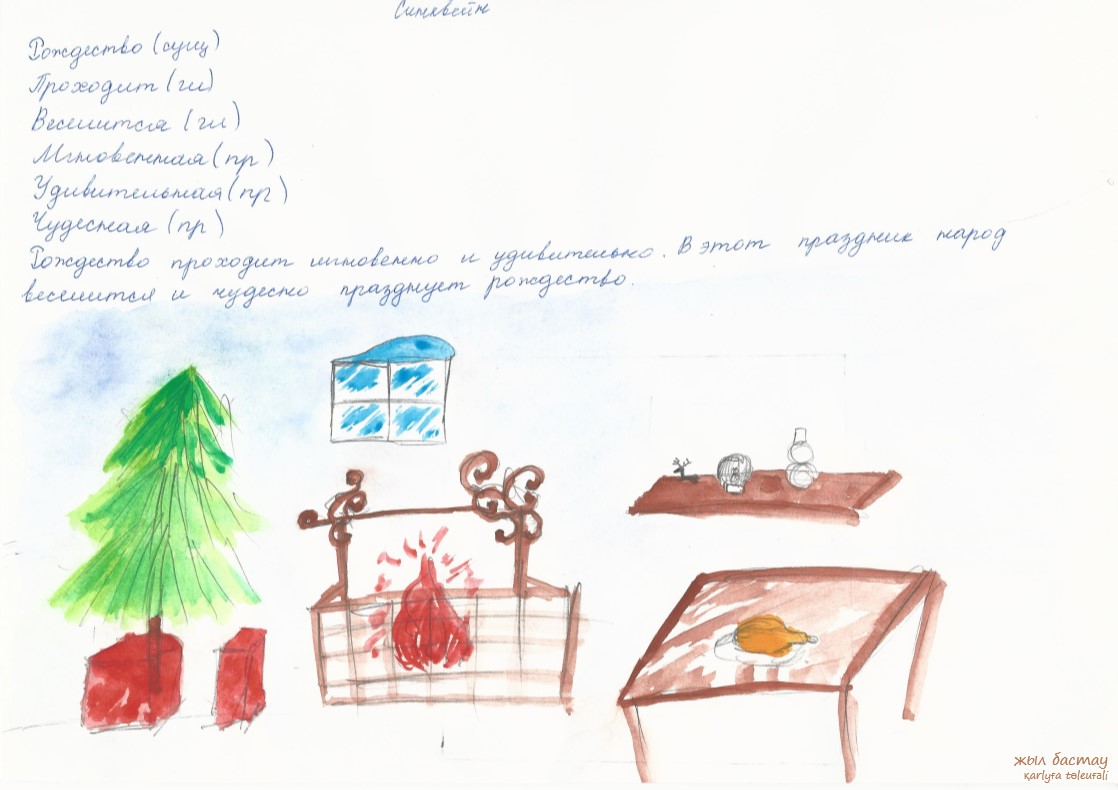 Синквейн
Рождество (сущ)
Проходит (гл)
Веселится (гл)
Мгновенная (пр)
Удивительная (пр)
Чудесная (пр)
Рождество проходит мгновенно и удивительно. В этот праздник народ
веселится и чудесно празднует рождество.
жыл бастау
qarlyґa tөleuґali